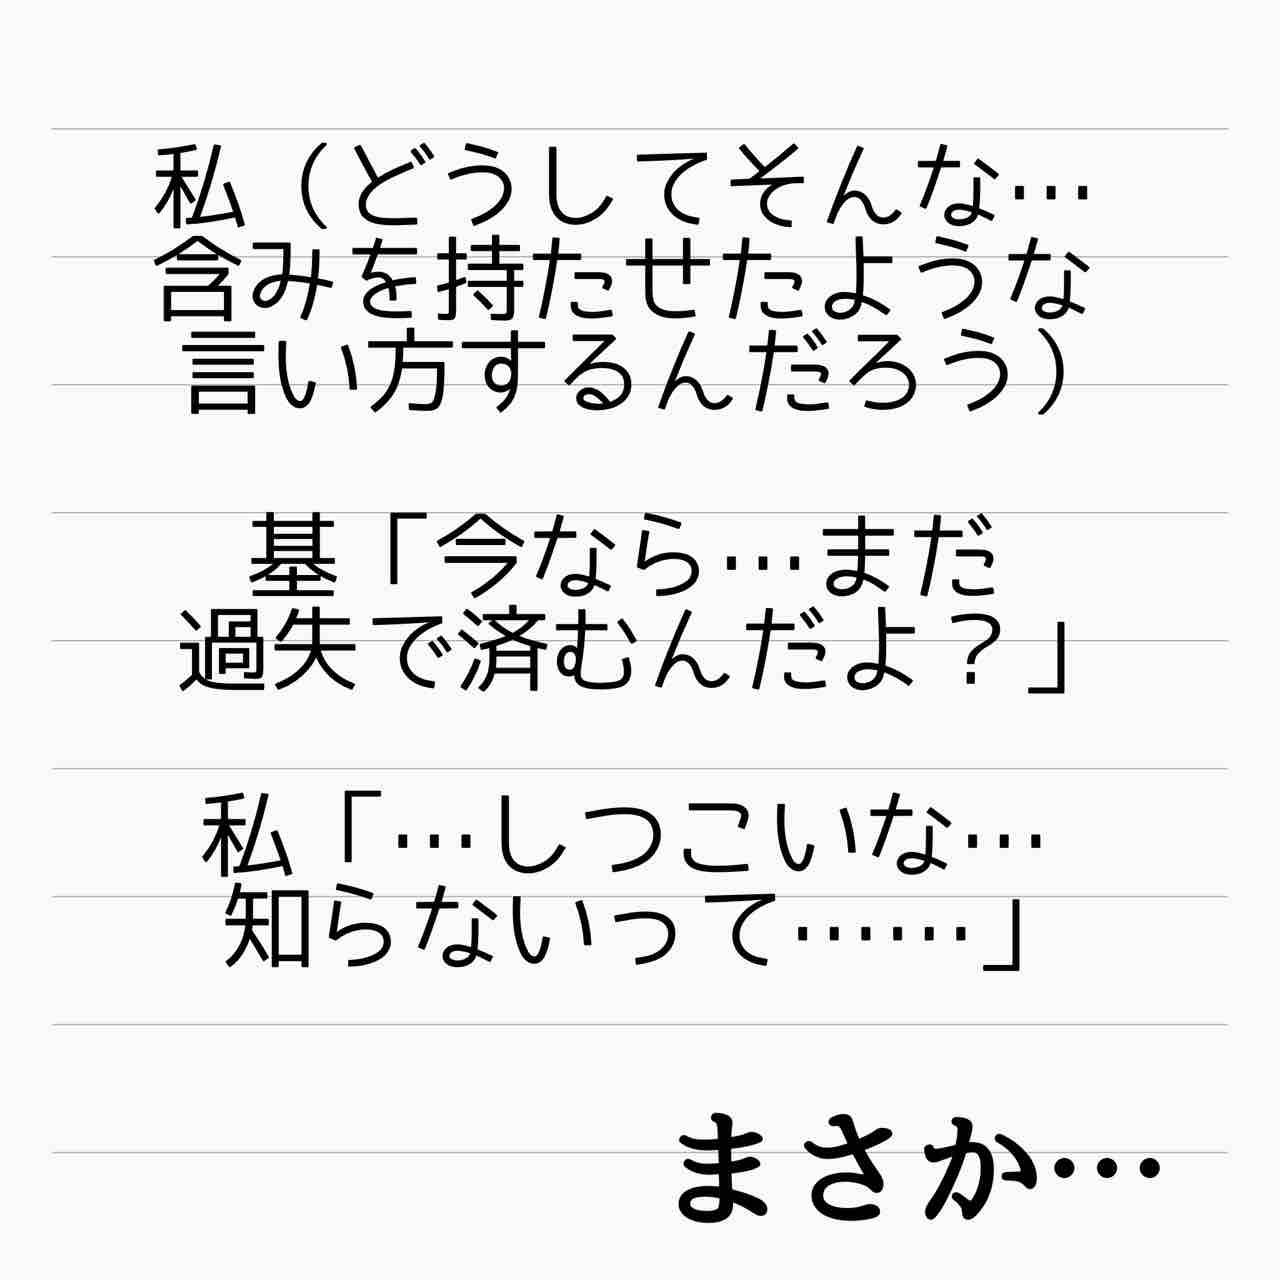 私（どうしてそんな…
含みを持たせたような
言い方するんだろう）
基「今なら…まだ
過失で済むんだよ？」
私「…しつこいな…
知らないって……」
まさか…